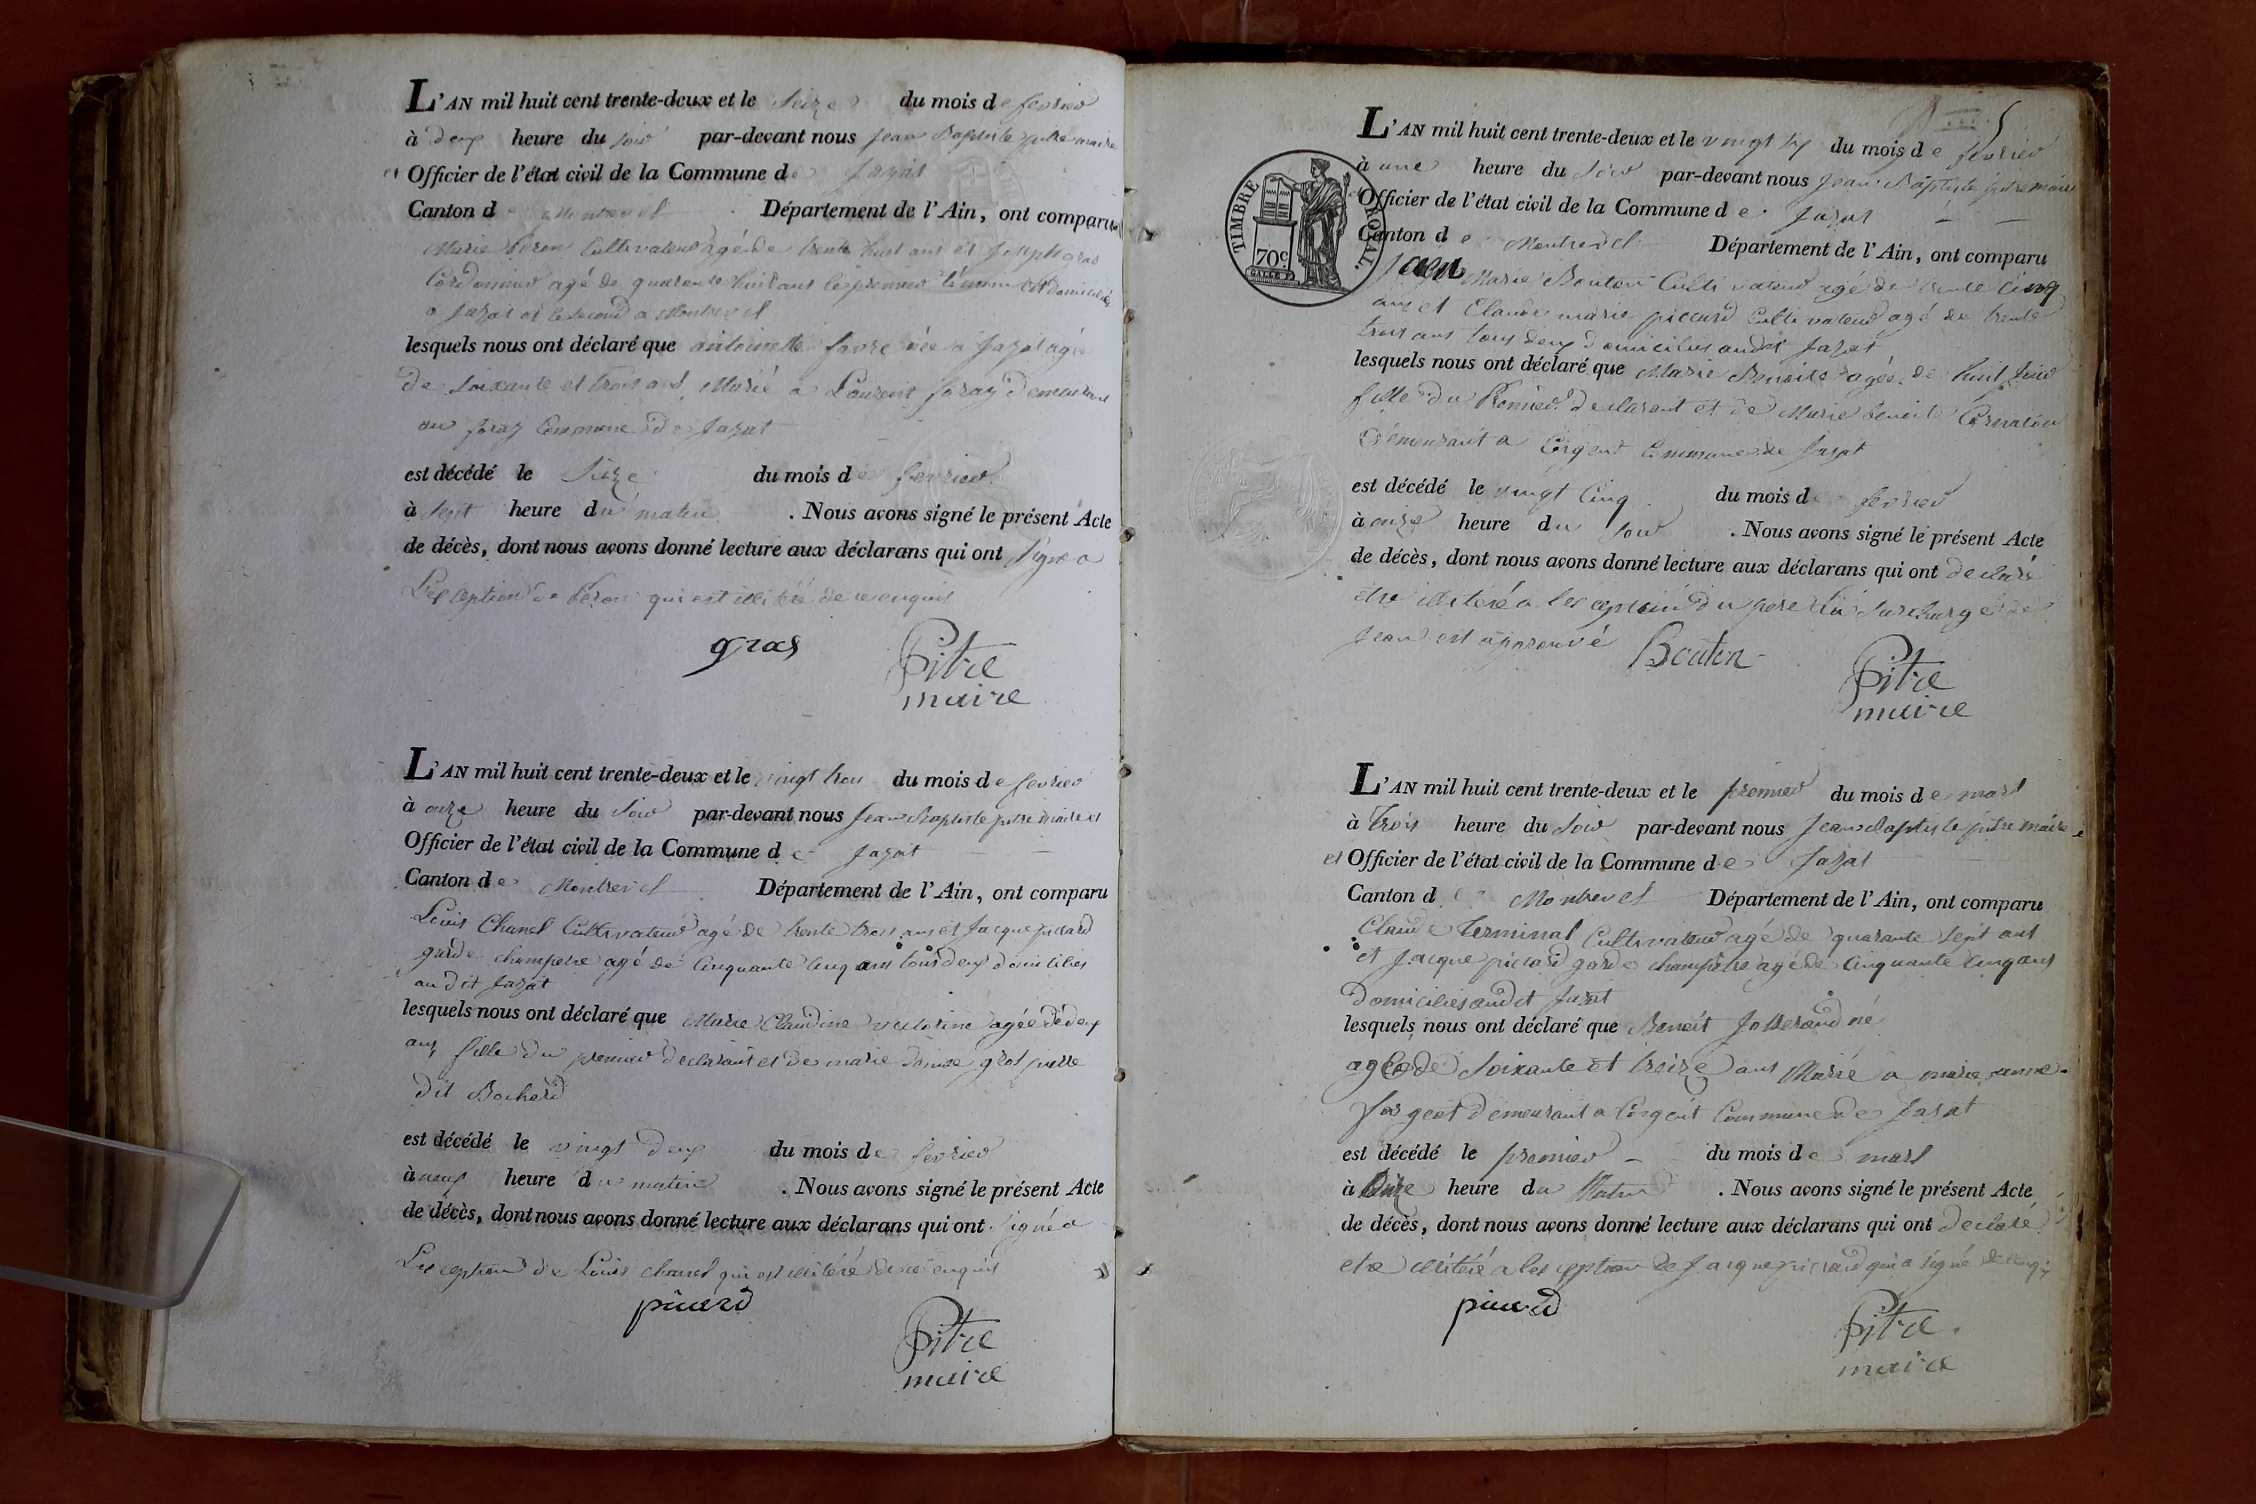 L'AN mil huit cent trente-deux et le Seize du mois de fevrier
à deux heure du soir par-devant nous Jean Baptiste pitre maire
et Officier de l'état civil de la Commune de Jayat
Canton de Montrevel Département de l'Ain, ont comparu
Marie feron Cultivateur agé de trente huit ans et Joseph gras
Cordonnier agé de quarante huit ans le premier témoin est domicilié
a Jayat et le second a Montrevel
lesquels nous ont déclaré que antoinette favre née a Jayat agée
de soixante et trois ans Marié a Laurent foray demeurant
au foray Commune de Jayat
est décédé le Seize du mois de fevrier
à sept heure du matin . Nous avons signé le présent Acte
de décès, dont nous avons donné lecture aux déclarans qui ont signé a
L'exception de feron qui est illiteré de ce enquis
gras
Pitre
maire
L'AN mil huit cent trente-deux et le vingt trois du mois de fevrier
à onze heure du Soir par-devant nous Jean Baptiste pitre maire et
Officier de l'état civil de la Commune de Jayat
Canton de Montrevel Département de l'Ain, ont comparu
Louis Chanel Cultivateur agé de trente trois ans et Jacque piccard
garde champetre agé de Cinquante Cinq ans tous deux domiciliés
au dit Jayat
lesquels nous ont déclaré que Marie Claudine agée de deux
ans fille du premier declarant et de marie gros pierre
dit Bochard
est décédé le vingt deux du mois de fevrier
à neuf heure du matin . Nous avons signé le présent Acte
de décès, dont nous avons donné lecture aux déclarans qui ont signé a
L'exception de Louis chanel qui est illitéré de ce enquis
picard
Pitre
maire
5
L'AN mil huit cent trente-deux et le vingt six du mois de fevrier
à une heure du Soir par-devant nous Jean Baptiste pitre maire
et Officier de l'état civil de la Commune de Jayat
Canton de Montrevel Département de l'Ain, ont comparu
TIMBRE ROYAL.
70c
Jean Marie Bouton Cultivateur agé de trente cinq
ans et Claude marie piccard Cultivateur agé de trente
trois ans tous deux domiciliés audit Jayat
lesquels nous ont déclaré que Marie Benoite agée de huit jour
fille du Premier declarant et de Marie benoite Cornaton
Demeurant a Cezgeat Commune de Jayat
est décédé le vingt Cinq du mois de fevrier
à onze heure du soir . Nous avons signé le présent Acte
de décès, dont nous avons donné lecture aux déclarans qui ont declaré
etre illiteré a l'exception du pere la surcharge de
Jean est approuvé
Bouton
Pitre
maire
L'AN mil huit cent trente-deux et le premier du mois de mars
à Trois heure du Soir par-devant nous Jean Baptiste pitre maire
et Officier de l'état civil de la Commune de Jayat
Canton de Montrevel Département de l'Ain, ont comparu
Claude Terminal Cultivateur agé de quarante sept ans
et Jacque piccard garde champêtre agé de Cinquante Cinq ans
Domiciliés audit Jayat
lesquels nous ont déclaré que Benoit Josserand né
agé de Soixante et treize ans Marié a marie anne
forgeot demeurant a Cezgeat Commune de Jayat
est décédé le premier du mois de mars
à Onze heure du Matin . Nous avons signé le présent Acte
de décès, dont nous avons donné lecture aux déclarans qui ont declaré
etre illiteré a l'exception de Jacque piccard qui a signé
picard
Pitre
maire